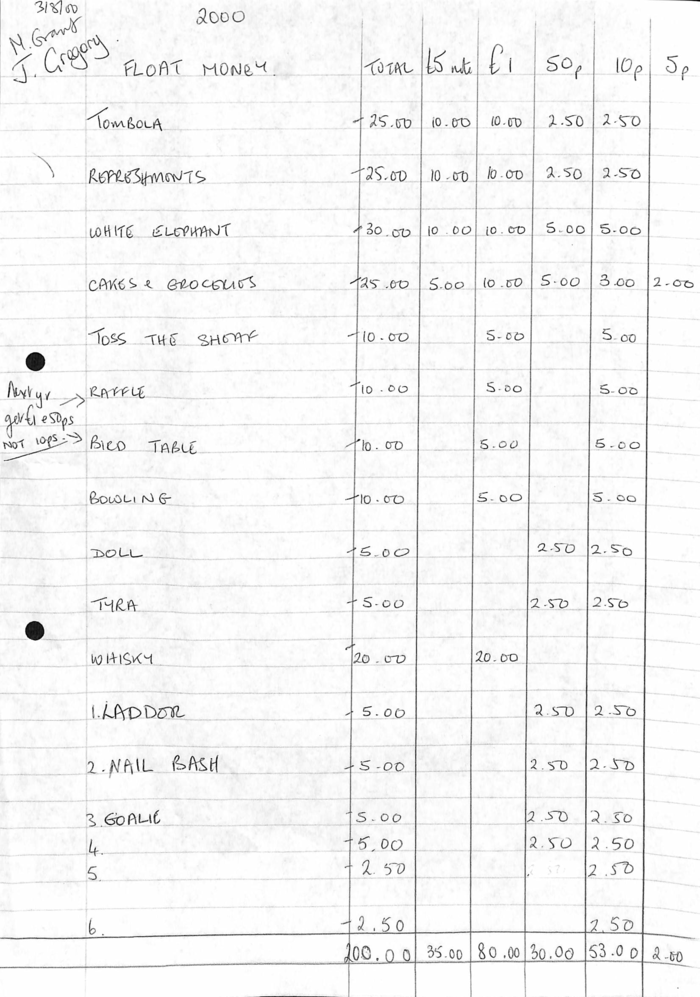 3/8/00
2000
M. Grant
J. Gregory.
FLOAT MONEY. TOTAL £5 note £1 50p 10p 5p
TOMBOLA 25.00 10.00 10.00 2.50 2.50
REFRESHMENTS 25.00 10.00 10.00 2.50 2.50
WHITE ELEPHANT 30.00 10.00 10.00 5.00 5.00
CAKES & GROCERIES 25.00 5.00 10.00 5.00 3.00 2.00
TOSS THE SHEAF 10.00 5.00 5.00
Next yr
get £1 & 50ps
NOT 10ps.
RAFFLE 10.00 5.00 5.00
BIRD TABLE 10.00 5.00 5.00
BOWLING 10.00 5.00 5.00
DOLL 5.00 2.50 2.50
TYRA 5.00 2.50 2.50
WHISKY 20.00 20.00
1. LADDER 5.00 2.50 2.50
2. NAIL BASH 5.00 2.50 2.50
3. GOALIE 5.00 2.50 2.50
4. 5.00 2.50 2.50
5. 2.50 2.50
6. 2.50 2.50
200.00 35.00 80.00 30.00 53.00 2.00